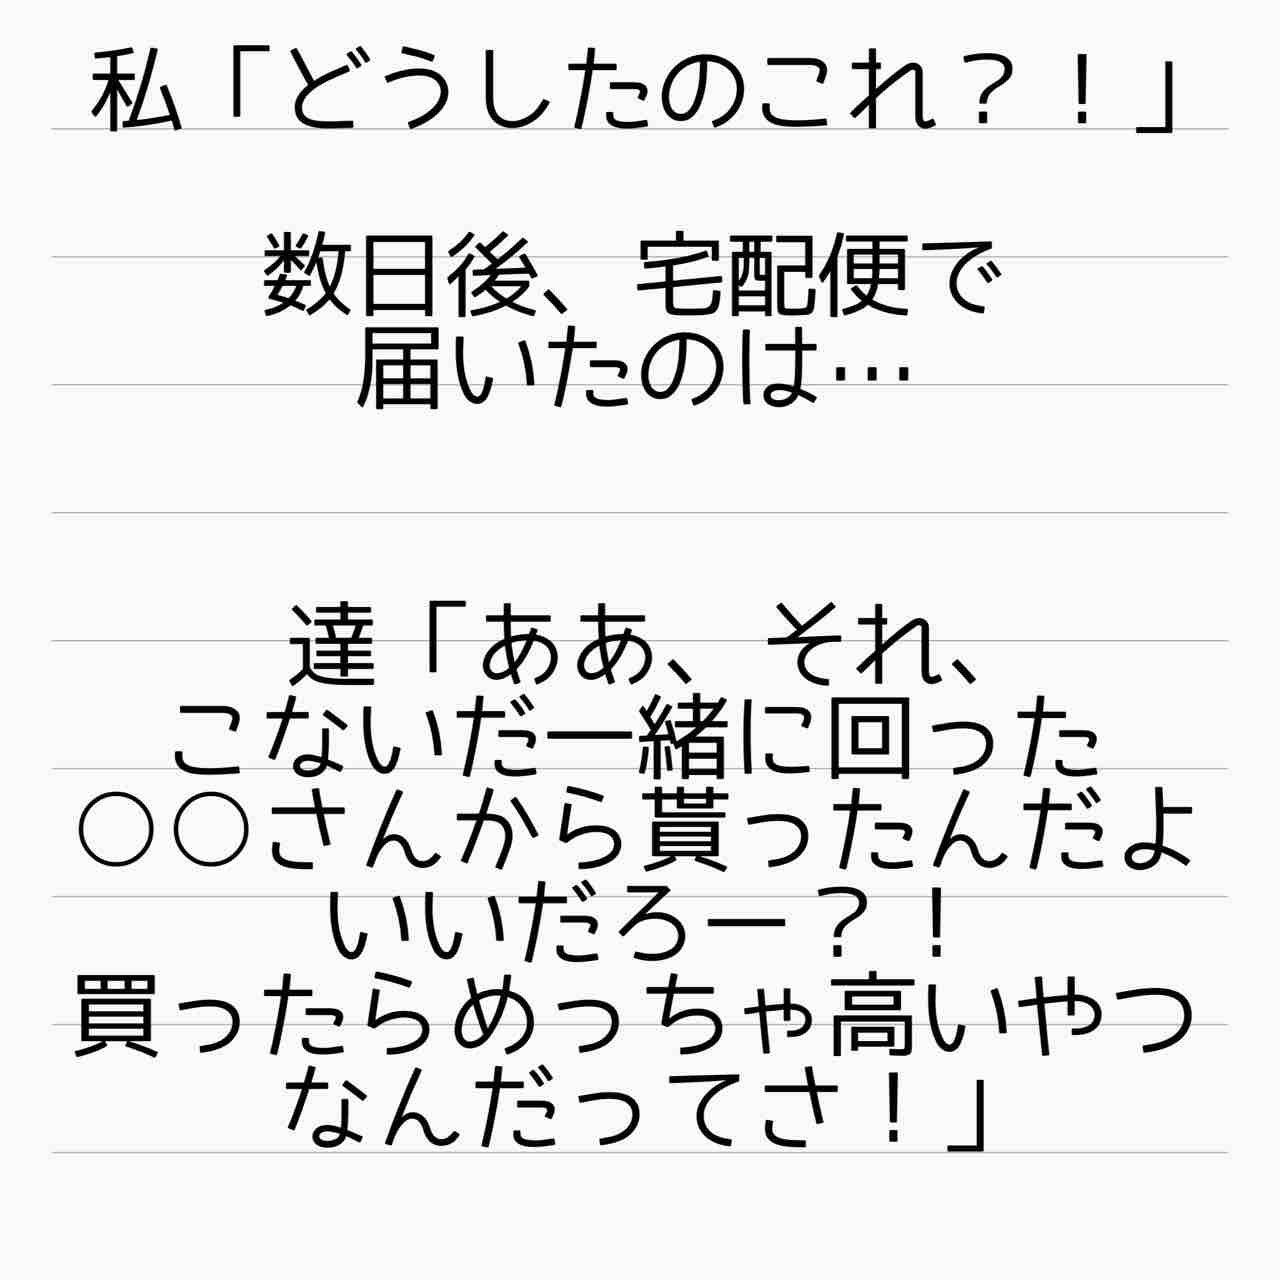 私「どうしたのこれ？！」
数日後、宅配便で
届いたのは…
達「ああ、それ、
こないだ一緒に回った
○○さんから貰ったんだよ
いいだろー？！
買ったらめっちゃ高いやつ
なんだってさ！」